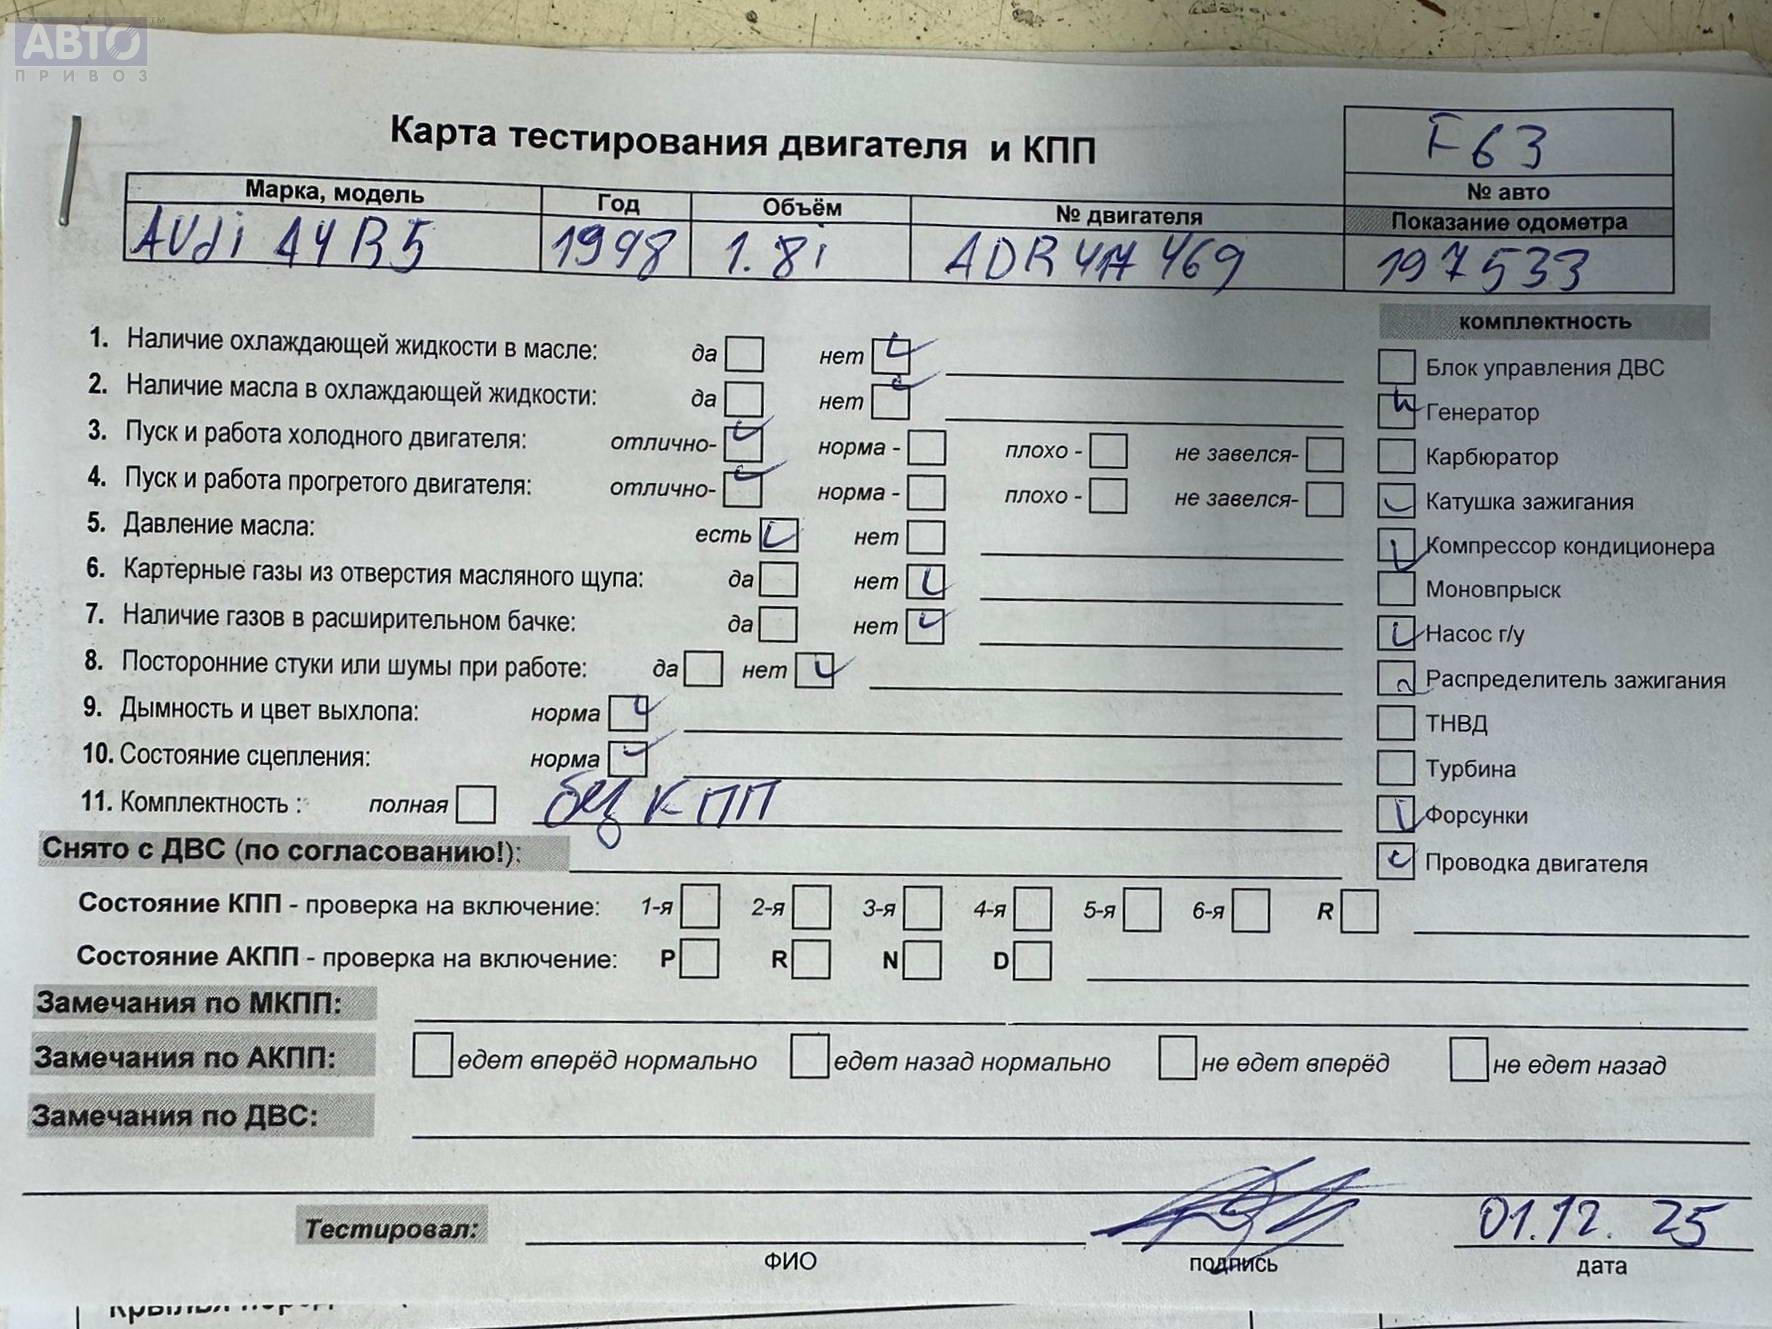 АВТО
ПРИВОЗ
Карта тестирования двигателя и КПП
F63
№ авто
Марка, модель Год Объём № двигателя Показание одометра
AUdi A4 B5 1998 1.8i ADR 417 469 197533
комплектность
1. Наличие охлаждающей жидкости в масле: да нет
Блок управления ДВС
2. Наличие масла в охлаждающей жидкости: да нет
Генератор
3. Пуск и работа холодного двигателя: отлично- норма - плохо - не завелся-
Карбюратор
4. Пуск и работа прогретого двигателя: отлично- норма - плохо - не завелся-
Катушка зажигания
5. Давление масла: есть нет
Компрессор кондиционера
6. Картерные газы из отверстия масляного щупа: да нет
Моновпрыск
7. Наличие газов в расширительном бачке: да нет
Насос г/у
8. Посторонние стуки или шумы при работе: да нет
Распределитель зажигания
9. Дымность и цвет выхлопа: норма
ТНВД
10. Состояние сцепления: норма
Турбина
11. Комплектность : полная без КПП
Форсунки
Снято с ДВС (по согласованию!):
Проводка двигателя
Состояние КПП - проверка на включение: 1-я 2-я 3-я 4-я 5-я 6-я R
Состояние АКПП - проверка на включение: P R N D
Замечания по МКПП:
Замечания по АКПП: едет вперёд нормально едет назад нормально не едет вперёд не едет назад
Замечания по ДВС:
Тестировал: 01.12.25
ФИО подпись дата